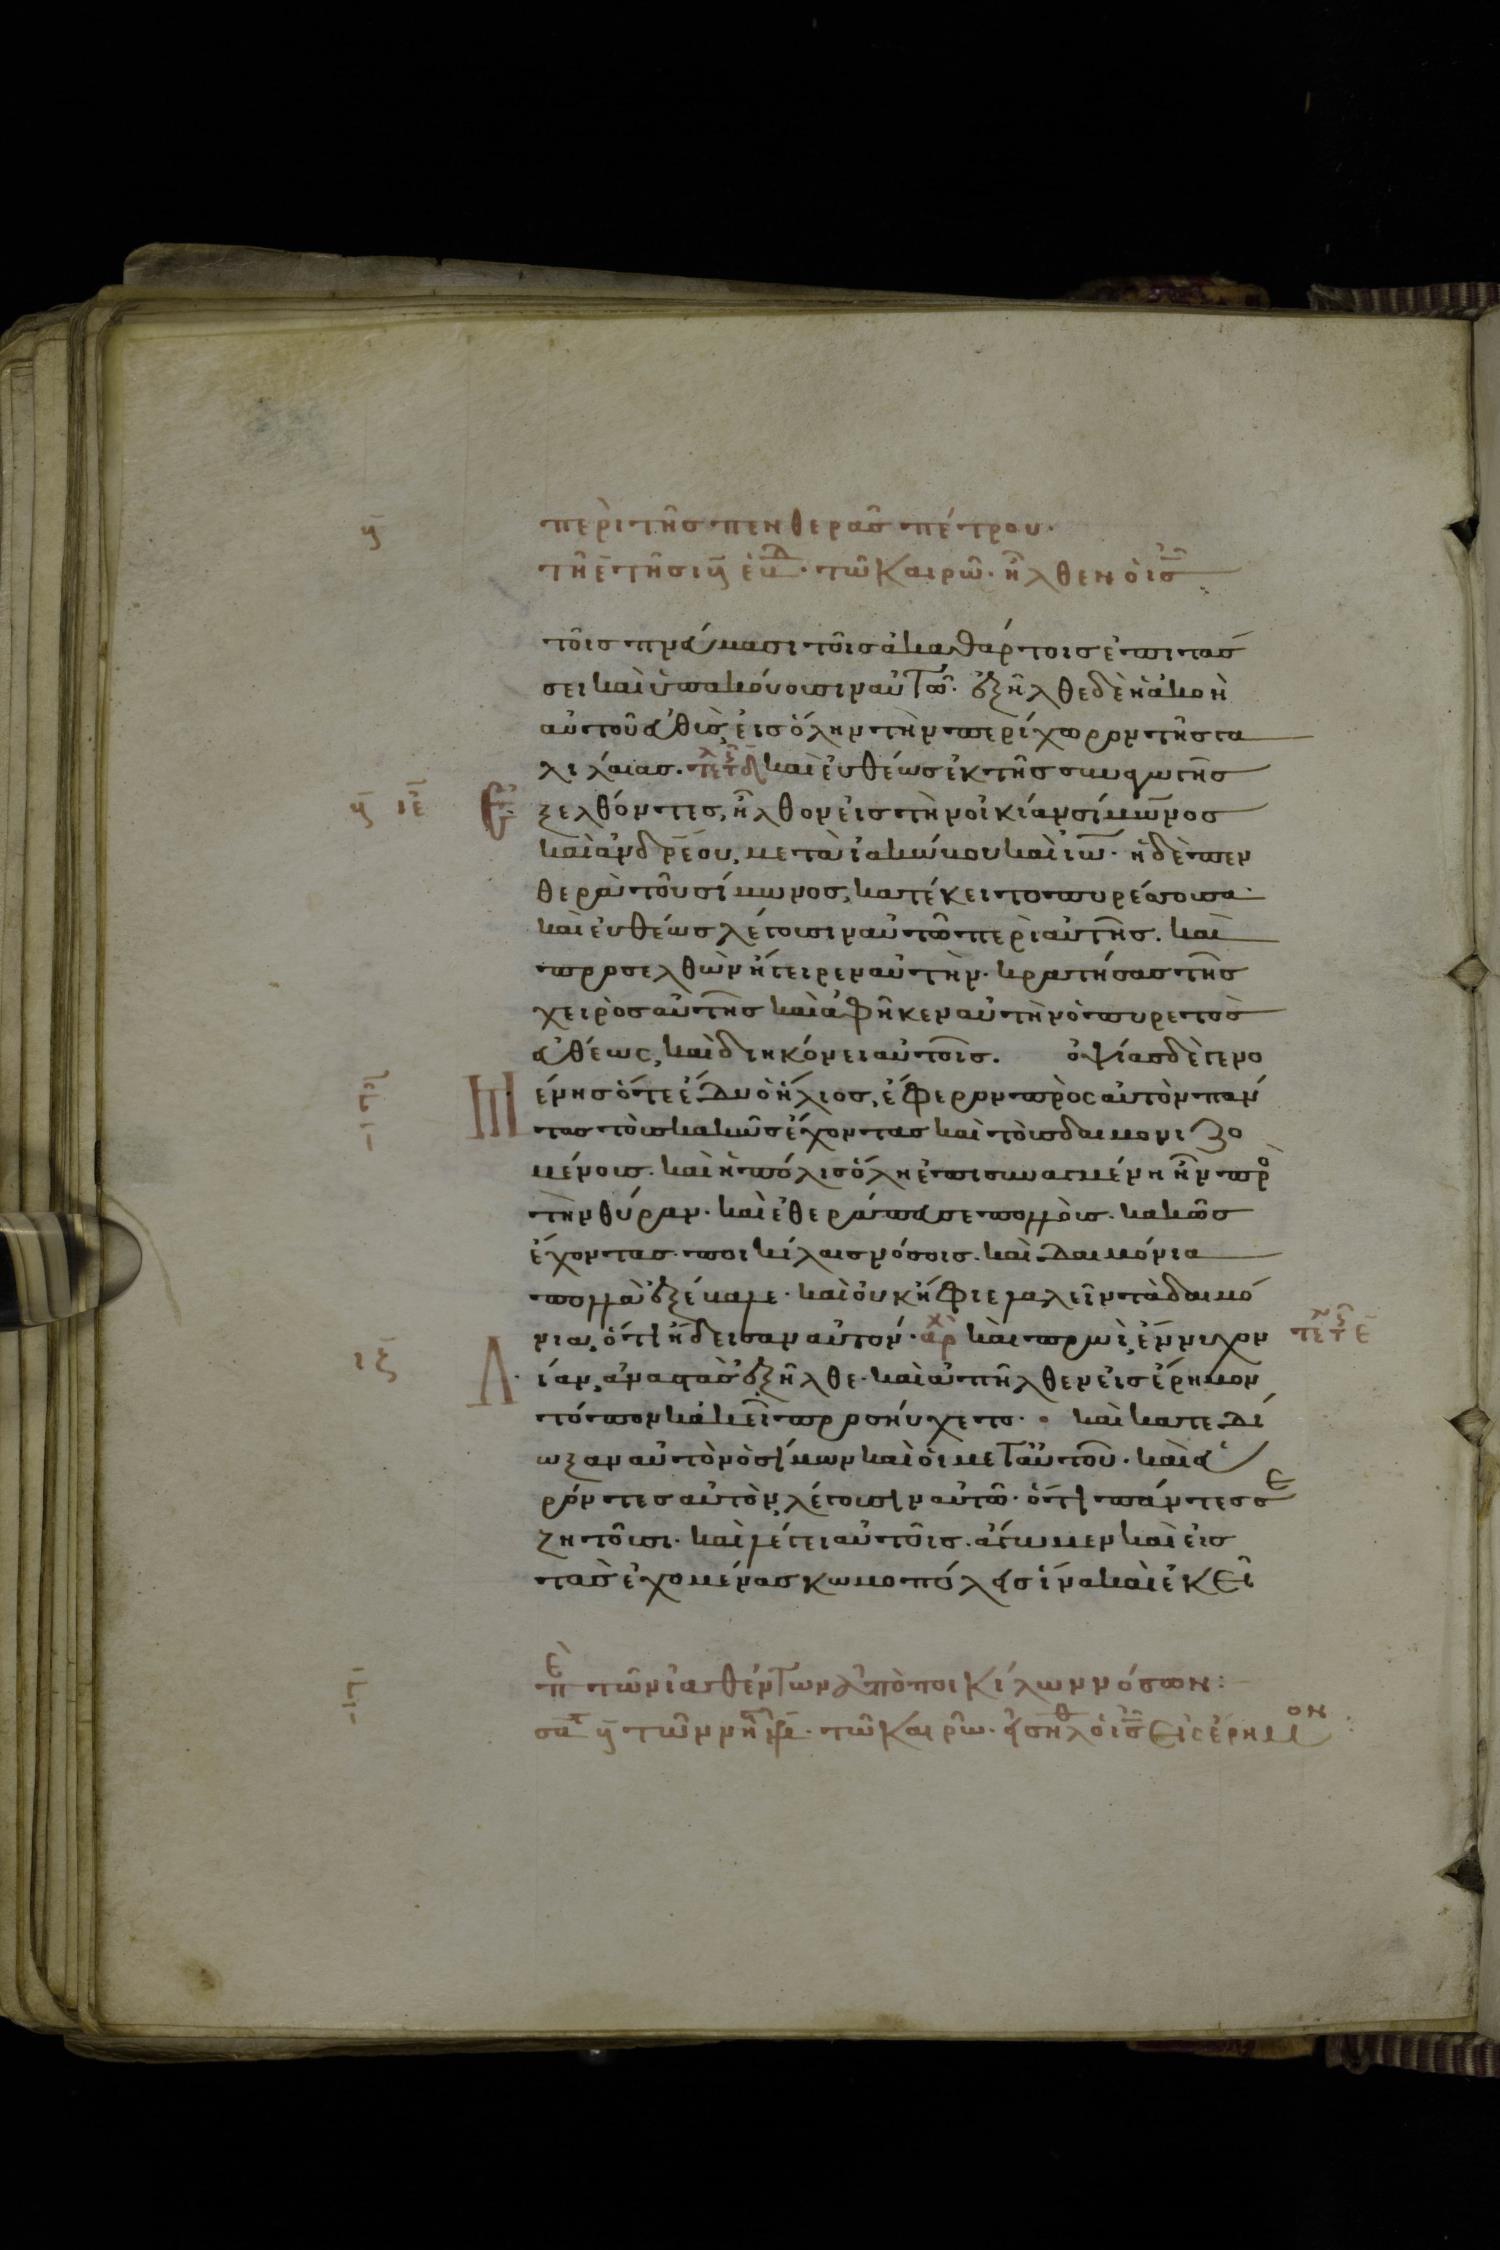 περὶ τῆς πενθερᾶς πέτρου·
τῷ καιρῷ· ἦλθεν ὁ ις
τοῖς πνεύμασι τοῖς ἀκαθάρτοις ἐπιτάσ
σει καὶ ὑπακούουσιν αὐτῷ· ἐξῆλθε δὲ ἡ ἀκοὴ
αὐτοῦ εὐθὺς, εἰς ὅλην τὴν περίχωρον τῆς γα
λιλαίας. καὶ εὐθέως ἐκ τῆς συναγωγῆς
ξελθόντες, ἦλθον εἰς τὴν οἰκίαν σίμωνος
καὶ ἀνδρέου, μετὰ ἰακώβου καὶ ιω· ἡ δὲ πεν
θερὰ τοῦ σίμωνος, κατέκειτο πυρέσσουσα·
καὶ εὐθέως λέγουσιν αὐτῷ περὶ αὐτῆς. καὶ
προσελθὼν ἤγειρεν αὐτὴν· κρατήσας τῆς
χειρὸς αὐτῆς καὶ ἀφῆκεν αὐτὴν ὁ πυρετὸς
εὐθέως, καὶ διηκόνει αὐτοῖς. ὀψίας δὲ γενο
μένης ὅτε ἔδυ ὁ ἥλιος, ἔφερον πρὸς αὐτὸν πάν
τας τοὺς κακῶς ἔχοντας καὶ τοὺς δαιμονιζο
μένους. καὶ ἡ πόλις ὅλη ἐπισυνηγμένη ἦν πρὸ
τὴν θύραν· καὶ ἐθεράπευσε πολλοὺς. κακῶς
ἔχοντας· ποικίλαις νόσοις. καὶ δαιμόνια
πολλὰ ἐξέβαλε· καὶ οὐκ ἤφιε λαλεῖν τὰ δαιμό
νια, ὅτι ᾔδεισαν αὐτόν· ἀρχ καὶ πρωὶ, ἔννυχον
λίαν, ἀναστὰς ἐξῆλθε· καὶ ἀπῆλθεν εἰς ἔρημον
τόπον κἀκεῖ προσηύχετο· καὶ κατεδί
ωξαν αὐτὸν ὁ σίμων καὶ οἱ μετ αὐτοῦ· καὶ εὑ
ρόντες αὐτὸν, λέγουσιν αὐτῷ· ὅτι πάντες σε
ζητοῦσι· καὶ λέγει αὐτοῖς. ἄγωμεν καὶ εἰς
τὰς ἐχομένας κωμοπόλεις ἵνα καὶ ἐκεῖ
πε τῶν ἰαθέντων ἀπὸ ποικίλων νόσων:
τῷ καιρῷ· εἰσῆλθ ὁ ις εἰς ἔρημον